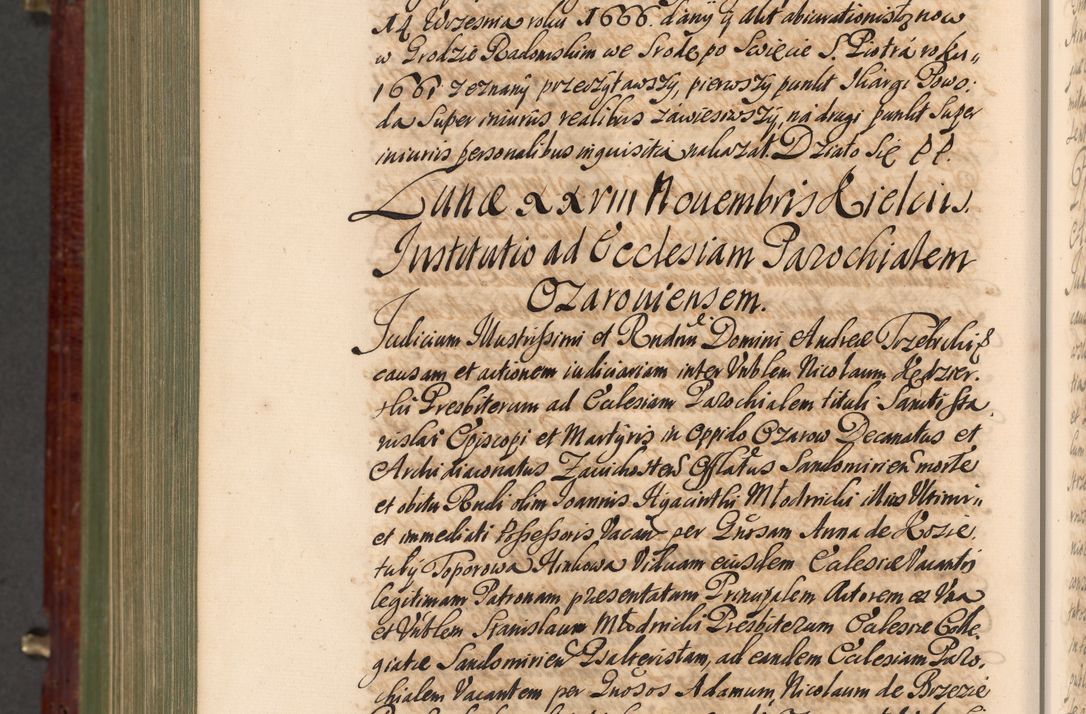 14 Wrzesnia roku 1666. dany ÿ akt abiurationis tznow
w Grodzie Radomskim we Srode po Swięcie S. Piotrá roku„
1661 zeznany przeczytawszÿ, pierwszÿ punkt Skargi Powo:
da Super iniuriis realibus záwiesiwszÿ, ná drugi punkt Super
iniuriis personalibus inquisitia nakazał. Działo Się PP.
Lunæ XXVIII Nouembris Kielciis.
Institutio ad Ecclesiam Parochialem
Ozarouiensem.
Iudicium Illustrissimi et Rndmi Domini Andreæ Trzebicki &
causam et actionem iudiciariam inter Vnblem Nicolaum Kędzier.
ski Presbiterum ad Ecclesiam Parochialem tituli Sancti Sta
nislai Episcopi et Martÿris in oppido Ozarow Decanatus et
Archidiaconatus Zawichosten Offlatus Sandomirien morte
et obitu Rndi olim Ioannis Hyacinthi Młodnicki illius Vltimi„
et immediati Possessoris Vacan per Gnosam Anna de Kozie.
tulÿ Toporowa Hinkowa Viduam eiusdem Ecclesiæ Vacantis
legitimam Patronam præsentatum Principalem Actorem ex Vna
et Vnblem Stanislaum Młodnicki Presbiterum Ecclesiæ Colle
giatæ Sandomirien Psalteristam, ad eandem Ecclesiam Paro.
chialem Vacantem per Gnosos Adamum, Nicolaum de Brzezie